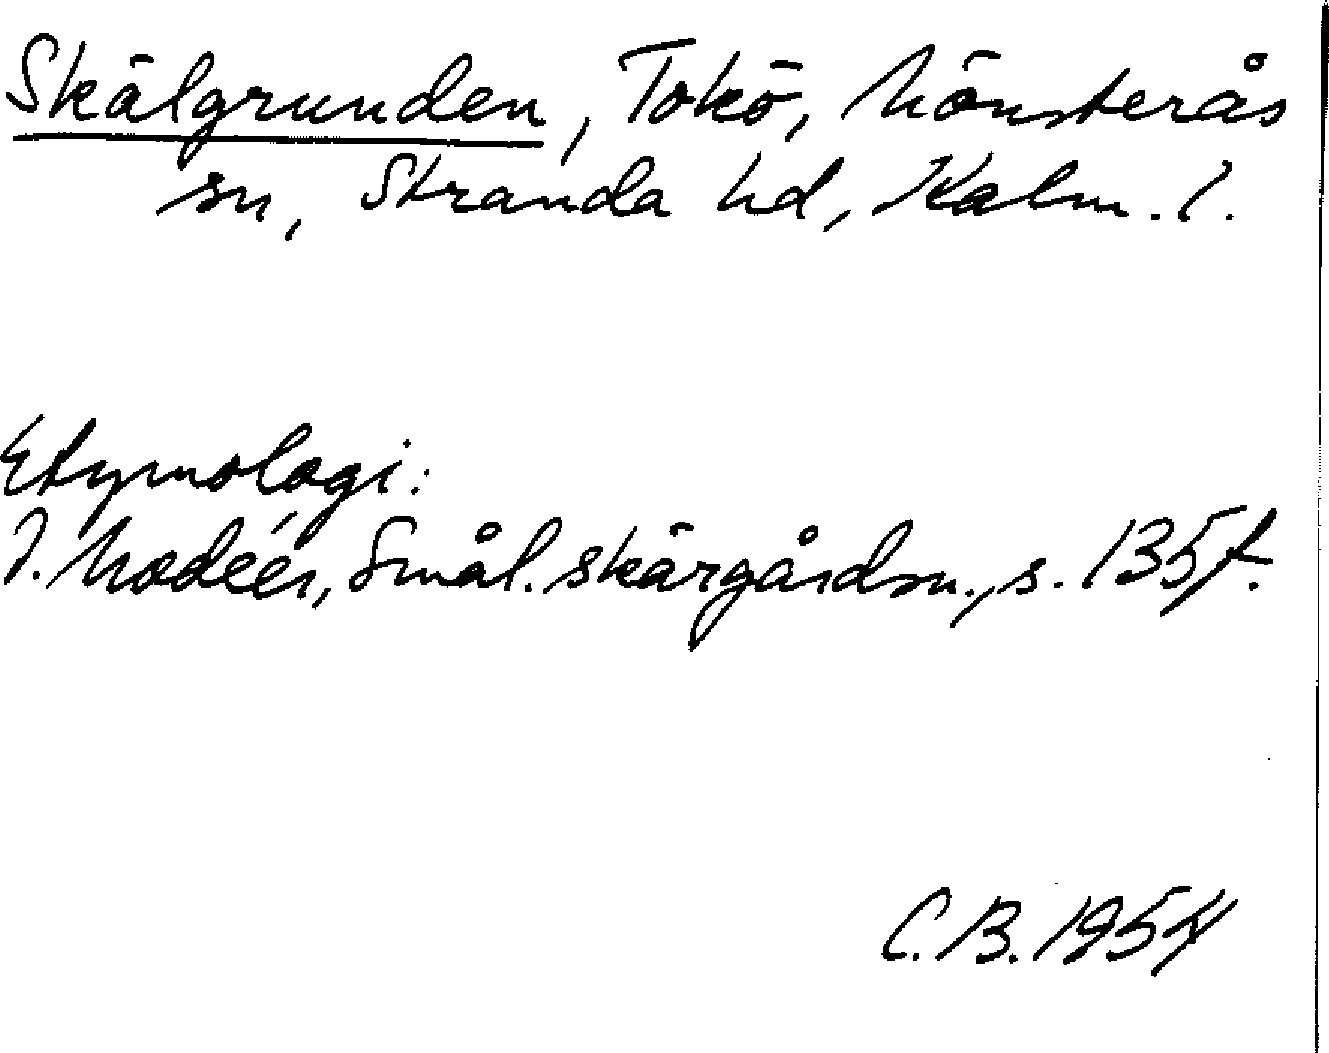 Skälgrunden, Tokö, Mönsterås
sn, Stranda hd, Kalm. l.
Etymologi:
I. Modéer, Smål. skärgårdsn., s. 135f.
C. B. 1954